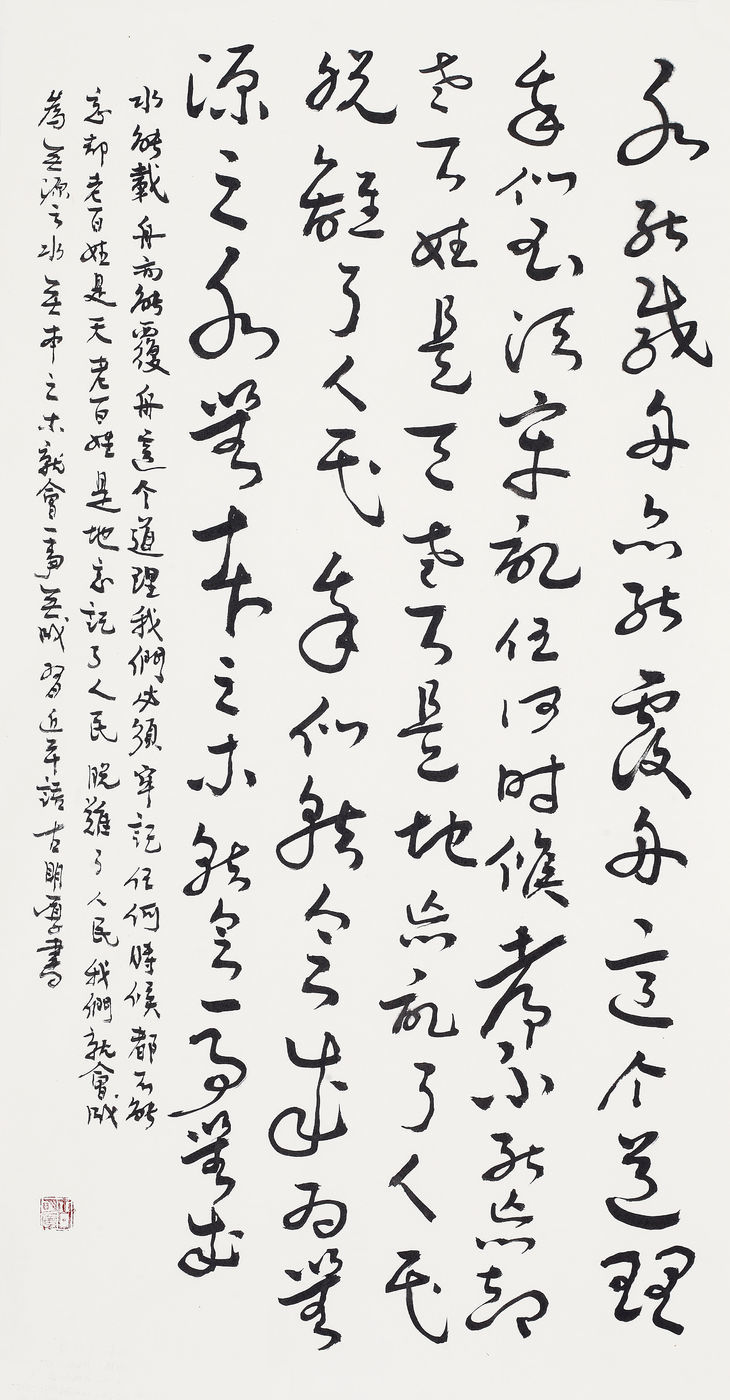 水能載舟亦能覆舟這个道理
我們必須牢記任何时候都不能忘却
老百姓是天老百姓是地忘記了人民
脱離了人民我們就會成為無
源之水無本之木就會一事無成
水能載舟亦能覆舟這个道理我們必須牢記任何時候都不能
忘却老百姓是天老百姓是地忘記了人民脱離了人民我們就會成
為無源之水無本之木就會一事無成習近平語古明書